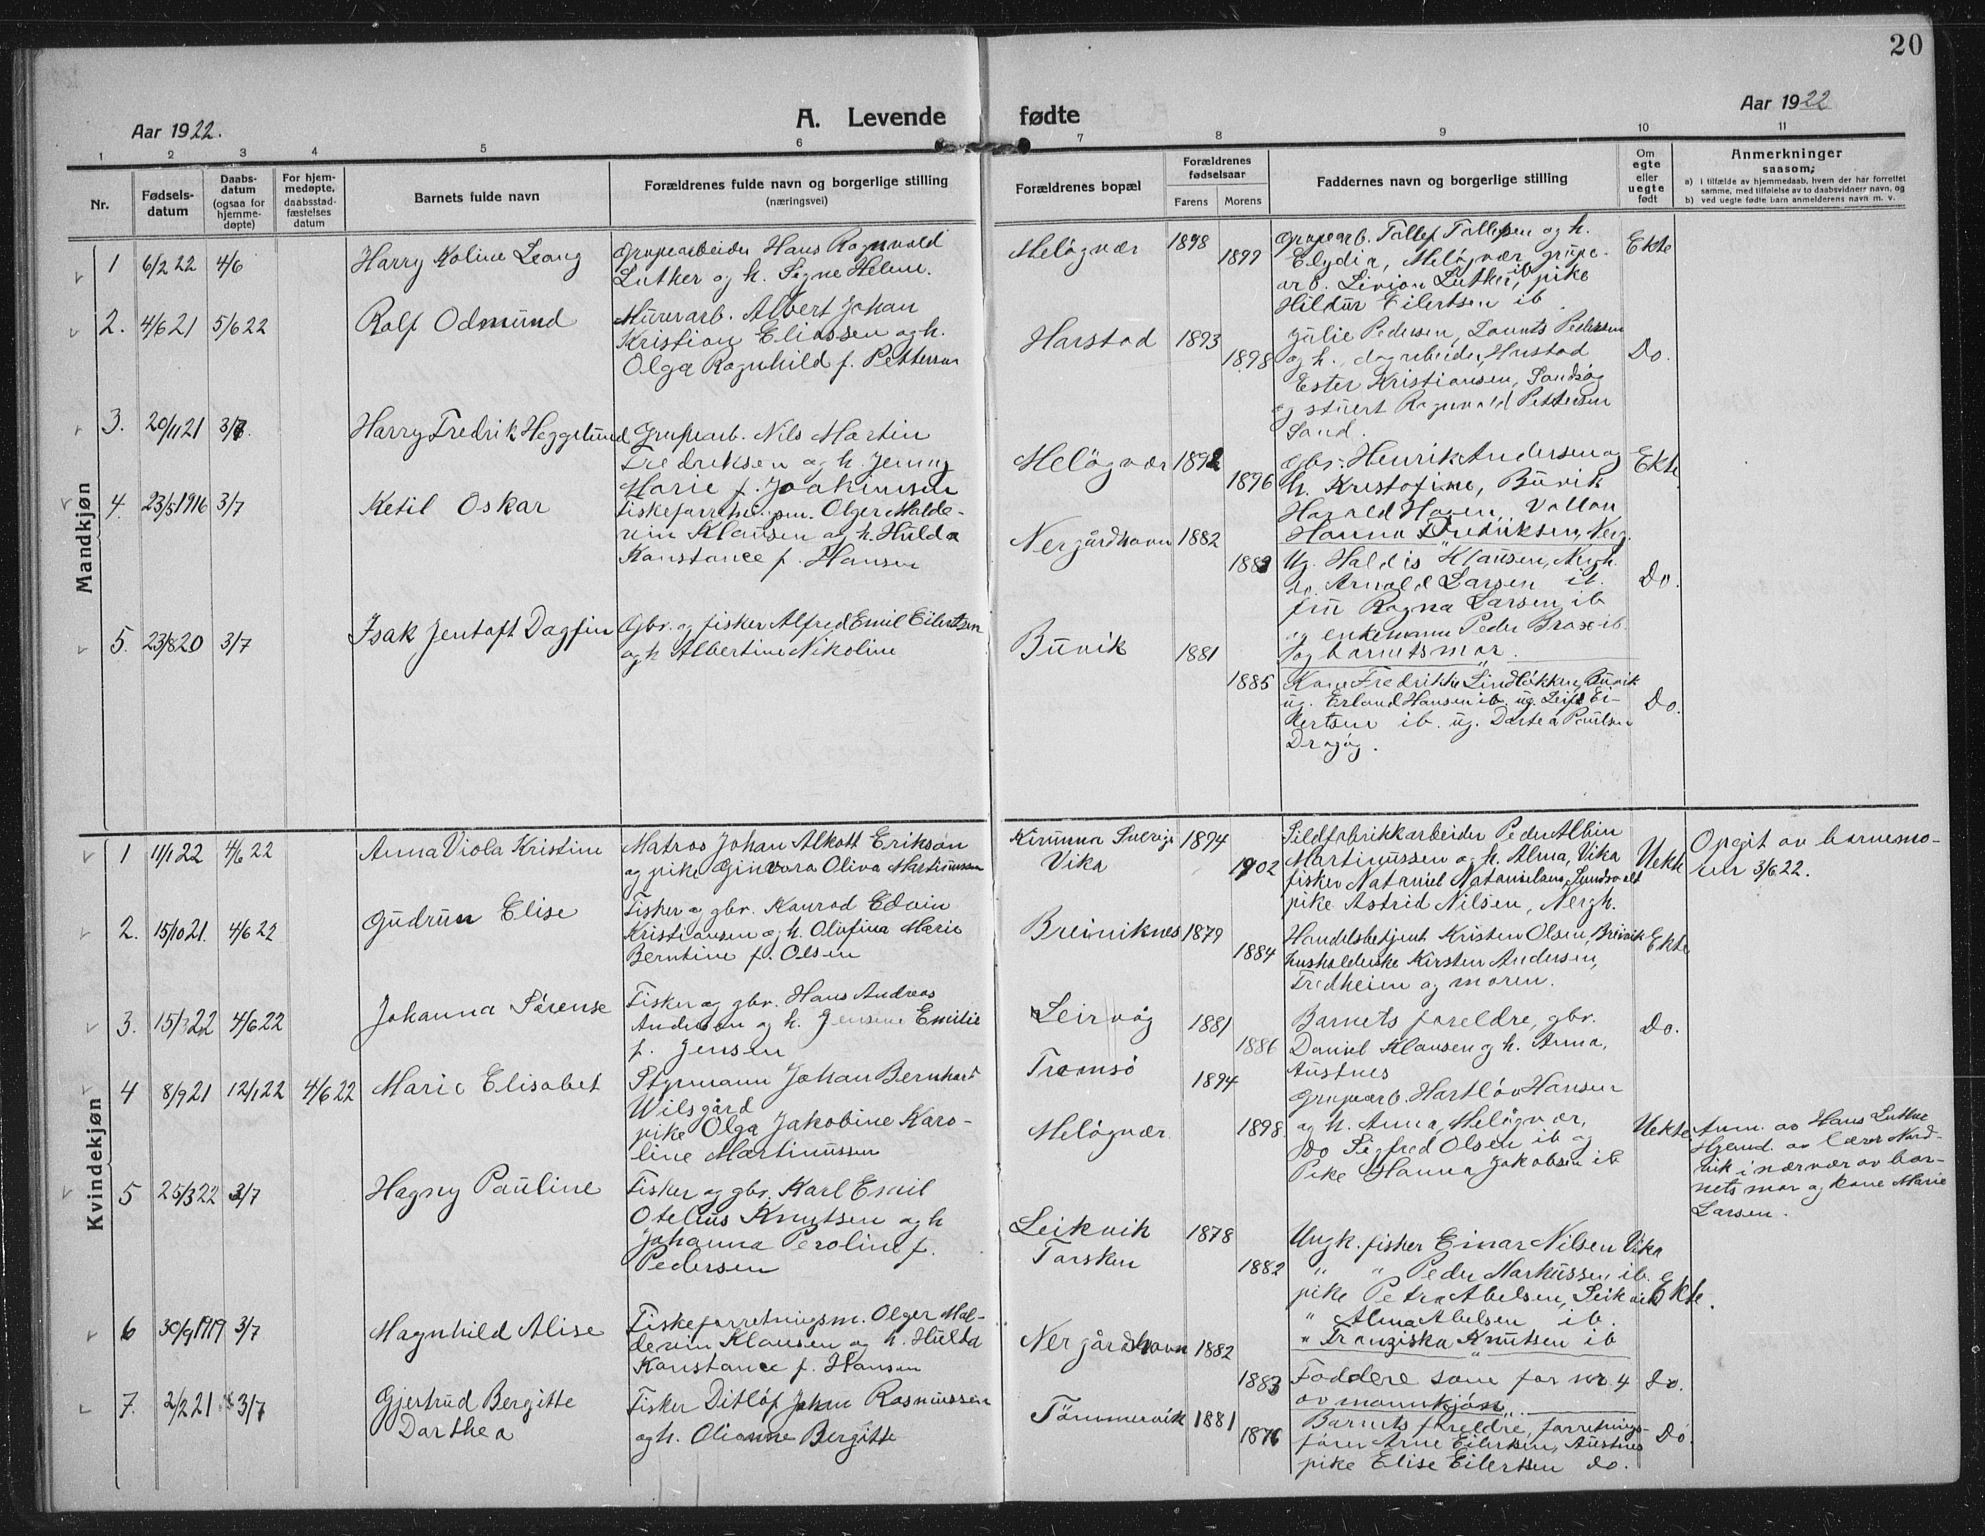 20
Aar 1922.
A. Levende fødte
Aar 1922
1 2 3 4 5 6 7 8 9 10 11
Nr.
Fødsels-
datum
Daabs-
datum
(ogsaa for
hjemme-
døpte)
For hjem-
medøpte,
daabsstad-
fæstelses
datum
Barnets fulde navn
Forældrenes fulde navn og borgerlige stilling
(næringsvei)
Forældrenes bopæl
Forældrenes
fødselsaar
Farens Morens
Faddernes navn og borgerlige stilling
Om
egte
eller
uegte
født
Anmerkninger
saasom;
a) i tilfælde av hjemmedaab, hvem der har forrettet
samme, med tilføielse av to daabsvidners navn, og
b) ved uegte fødte barn anmelderens navn m. v.
Mandkjøn
1 6/2 22 4/6 Harry Koline Leang
Grupearbeider Hans Ragnvald
Luther og h. Signe Helene.
Meløgvær 1898 1899
Grupearb. Tollef Tollefsen og h.
Elydia, Meløgvær, grupe-
arb. Livion Luther ib, pike
Hildur Eilertsen ib
Ekte
2. 4/6 21 5/6 22 Rolf Odmund
Murerarb. Albert Johan
Kristian Eliassen og h.
Olga Ragnhild f. Pettersen
Harstad 1893 1898
Julie Pedersen, Laurits Pedersen
og h., dagarbeider, Harstad
Ester Kristiansen, Sandsøg
og stuert Ragnvald Pettersen
Sand.
Do.
3. 20/11 21 3/7. Harry Fredrik Heggelund
Grupearb. Nils Martin
Fredriksen og h. Jenny
Marie f. Joakimsen
Meløgvær 1892 1896
Gbr. Henrik Andersen og
h. Kristofine, Buvik
Harald Hagen, Vollan
Hanna Fredriksen, Nerg.
Ekte
4. 23/5 1916 3/7 Ketil Oskar
Fiskeforretningsm. Olger Malde-
vin Klausen og h. Hulda
Konstance f. Hansen
Nergårdhavn 1882 1883
Ug. Haldis Klausen, Nergh.
do. Arnold Larsen ib.
fru Ragna Larsen ib
og enkemann Peder Brox ib.
og barnets mor.
Do.
5. 23/8 20 3/7 Isak Jentoft Dagfin
Gbr. og fisker Alfred Emil Eilertsen
og h Albertine Nikoline
Buvik 1881 1885
Kone Fredrikke Lindbøkken, Buvik
ug. Erland Hansen ib. ug. Leif Ei-
lertsen ib. ug. Dartea Paulsen
Dragøg.
Do.
Kvindekjøn
1 1/1 22 4/6 22 Anna Viola Kristine
Matros Johan Alkott Erikson
og pike Ginvora Oliva Martinussen
Kiruna Sverige
Vika
1894 1902
Sildfabrikkarbeider Peder Albin
Martinussen og h. Alma, Vika
fisker Nataniel Natanielsen, Sundsvolt
pike Astrid Nilsen, Nergh.
Uekte
Opgit av barnemo-
ren 3/6 22.
2. 15/10 21. 4/6 22 Gudrun Elise
Fisker og gbr. Konrad Edvin
Kristiansen og h. Olufina Marie
Berntine f. Olsen
Breiviknes 1879 1884
Handelsbetjent Kristen Olsen, Breivik
husholderske Kirsten Andersen,
Fredheim og moren.
Ekte
3. 15/3 22 4/6 22 Johanna Sørense
Fisker og gbr. Hans Andreas
Andersen og h. Jensine Emilie
f. Jensen
Leirvåg 1881 1886
Barnets foreldre, gbr.
Daniel Klausen og h. Anna,
Austnes
Do.
4 8/9 21 12/1 22 4/6 22 Marie Elisabet
Styrmann Johan Bernhart
Wilsgård
pike Olga Jakobine Karo-
line Martinussen
Tromsø
Meløgvær
1894 1898
Grupearb. Hartløv Hansen
og h. Anna, Meløgvær,
Do Sigfred Olsen ib og
Pike Hanna Jakobsen ib
Uekte
Anm. av Hans Luther
Hjemd. av lærer Nord-
vik i nærvær av bar-
nets mor og kone Marie
Larsen.
5 25/3 22 3/7 Hagny Pauline
Fisker og gbr. Karl Emil
Otelius Knytsen og h
Johanna Peroline f.
Pedersen
Leikvik
Torsken
1878 1882
Ungk. fisker Einar Nilsen Vika
" " Peder Markussen ib.
pike Petra Abelsen, Leikvik
" Alma Abelsen ib.
" Franziska Knutsen ib
Ekte.
6 30/9 1919 3/7 Magnhild Alise
Fiskeforretningsm. Olger Mal-
devin Klausen og h. Hulda
Konstance f. Hansen
Nergårdhavn 1882 1883
Faddere som for nr. 4
av mannkjøn
Do.
7. 2/2 21 3/7 Gjertrud Bergitte
Darthea
Fisker Ditløf Johan Rasmussen
og h. Olianne Bergitte
Tømmervik 1881 1876
Barnets foreldre, forretnings-
fører Arne Eilertsen, Austnes
pike Elise Eilertsen do.
Do.